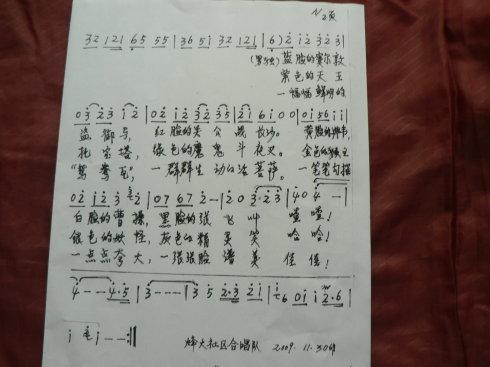 2页
32 121 65 55 | 36 5i 32 121 | 6) 2 i2 323 |
(男独) 蓝脸的窦尔敦
紫色的天王
一幅幅鲜明的
03 23 i2 | 02 i2 32 35 | 21 6 i 0 0 | 0i 56 i i |
盗御马, 红脸的关公战长沙。 黄脸的典韦,
托宝塔, 绿色的魔鬼斗夜叉。 金色的猴王
"鸳鸯瓦", 一群群生动的活菩萨。 一笔笔勾描
02 i2 3 2 | 07 67 2 - | 20 3·23 | 40 4 - |
白脸的曹操, 黑脸的张飞叫喳喳!
银色的妖怪, 灰色的精灵笑哈哈!
一点点夸大, 一张张脸谱美佳佳!
4 - - 4·5 | 3 - - - | 3 5 2·3 2i | i 6 0i i 2·6 |
i i - - :||
烽火社区合唱队 2009.11.30印